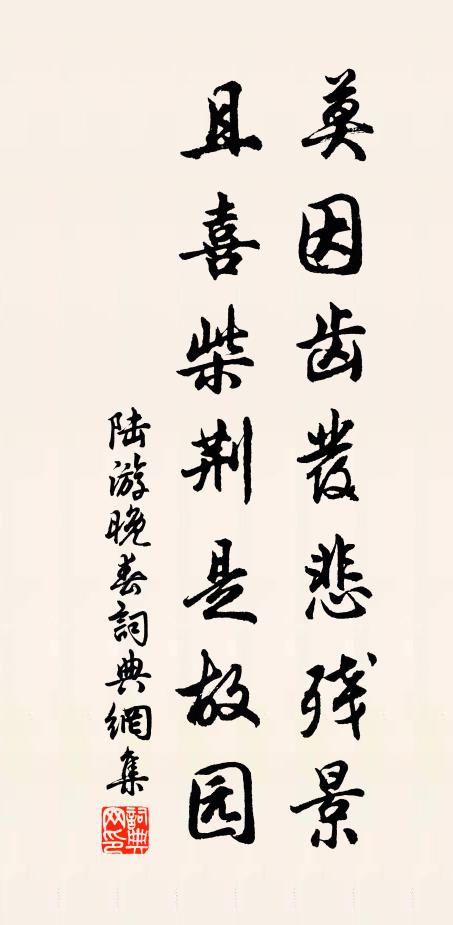 莫因齿发悲残景
且喜柴荆是故园
陆游晚春詞典網集
詞典
网印